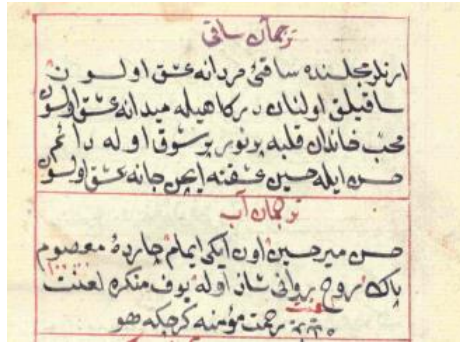 ترجمان ساقی
ارنلر مجلسنده ساقیٔ مردانه عشق اولسون
ساقیلق اولنان درکاهیله میدانه عشق اولسون
محب خاندان قلبه پرنور پرشوق اوله دائم
حسن ایله حسین عشقنه ایچن جانه عشق اولسون
ترجمان آب
حسن میر حسین اون ایکی امام چارده معصوم
پاك روح روانی شاذ اوله یوف منکره لعنت
رحمت مؤمنه کرچکه هو